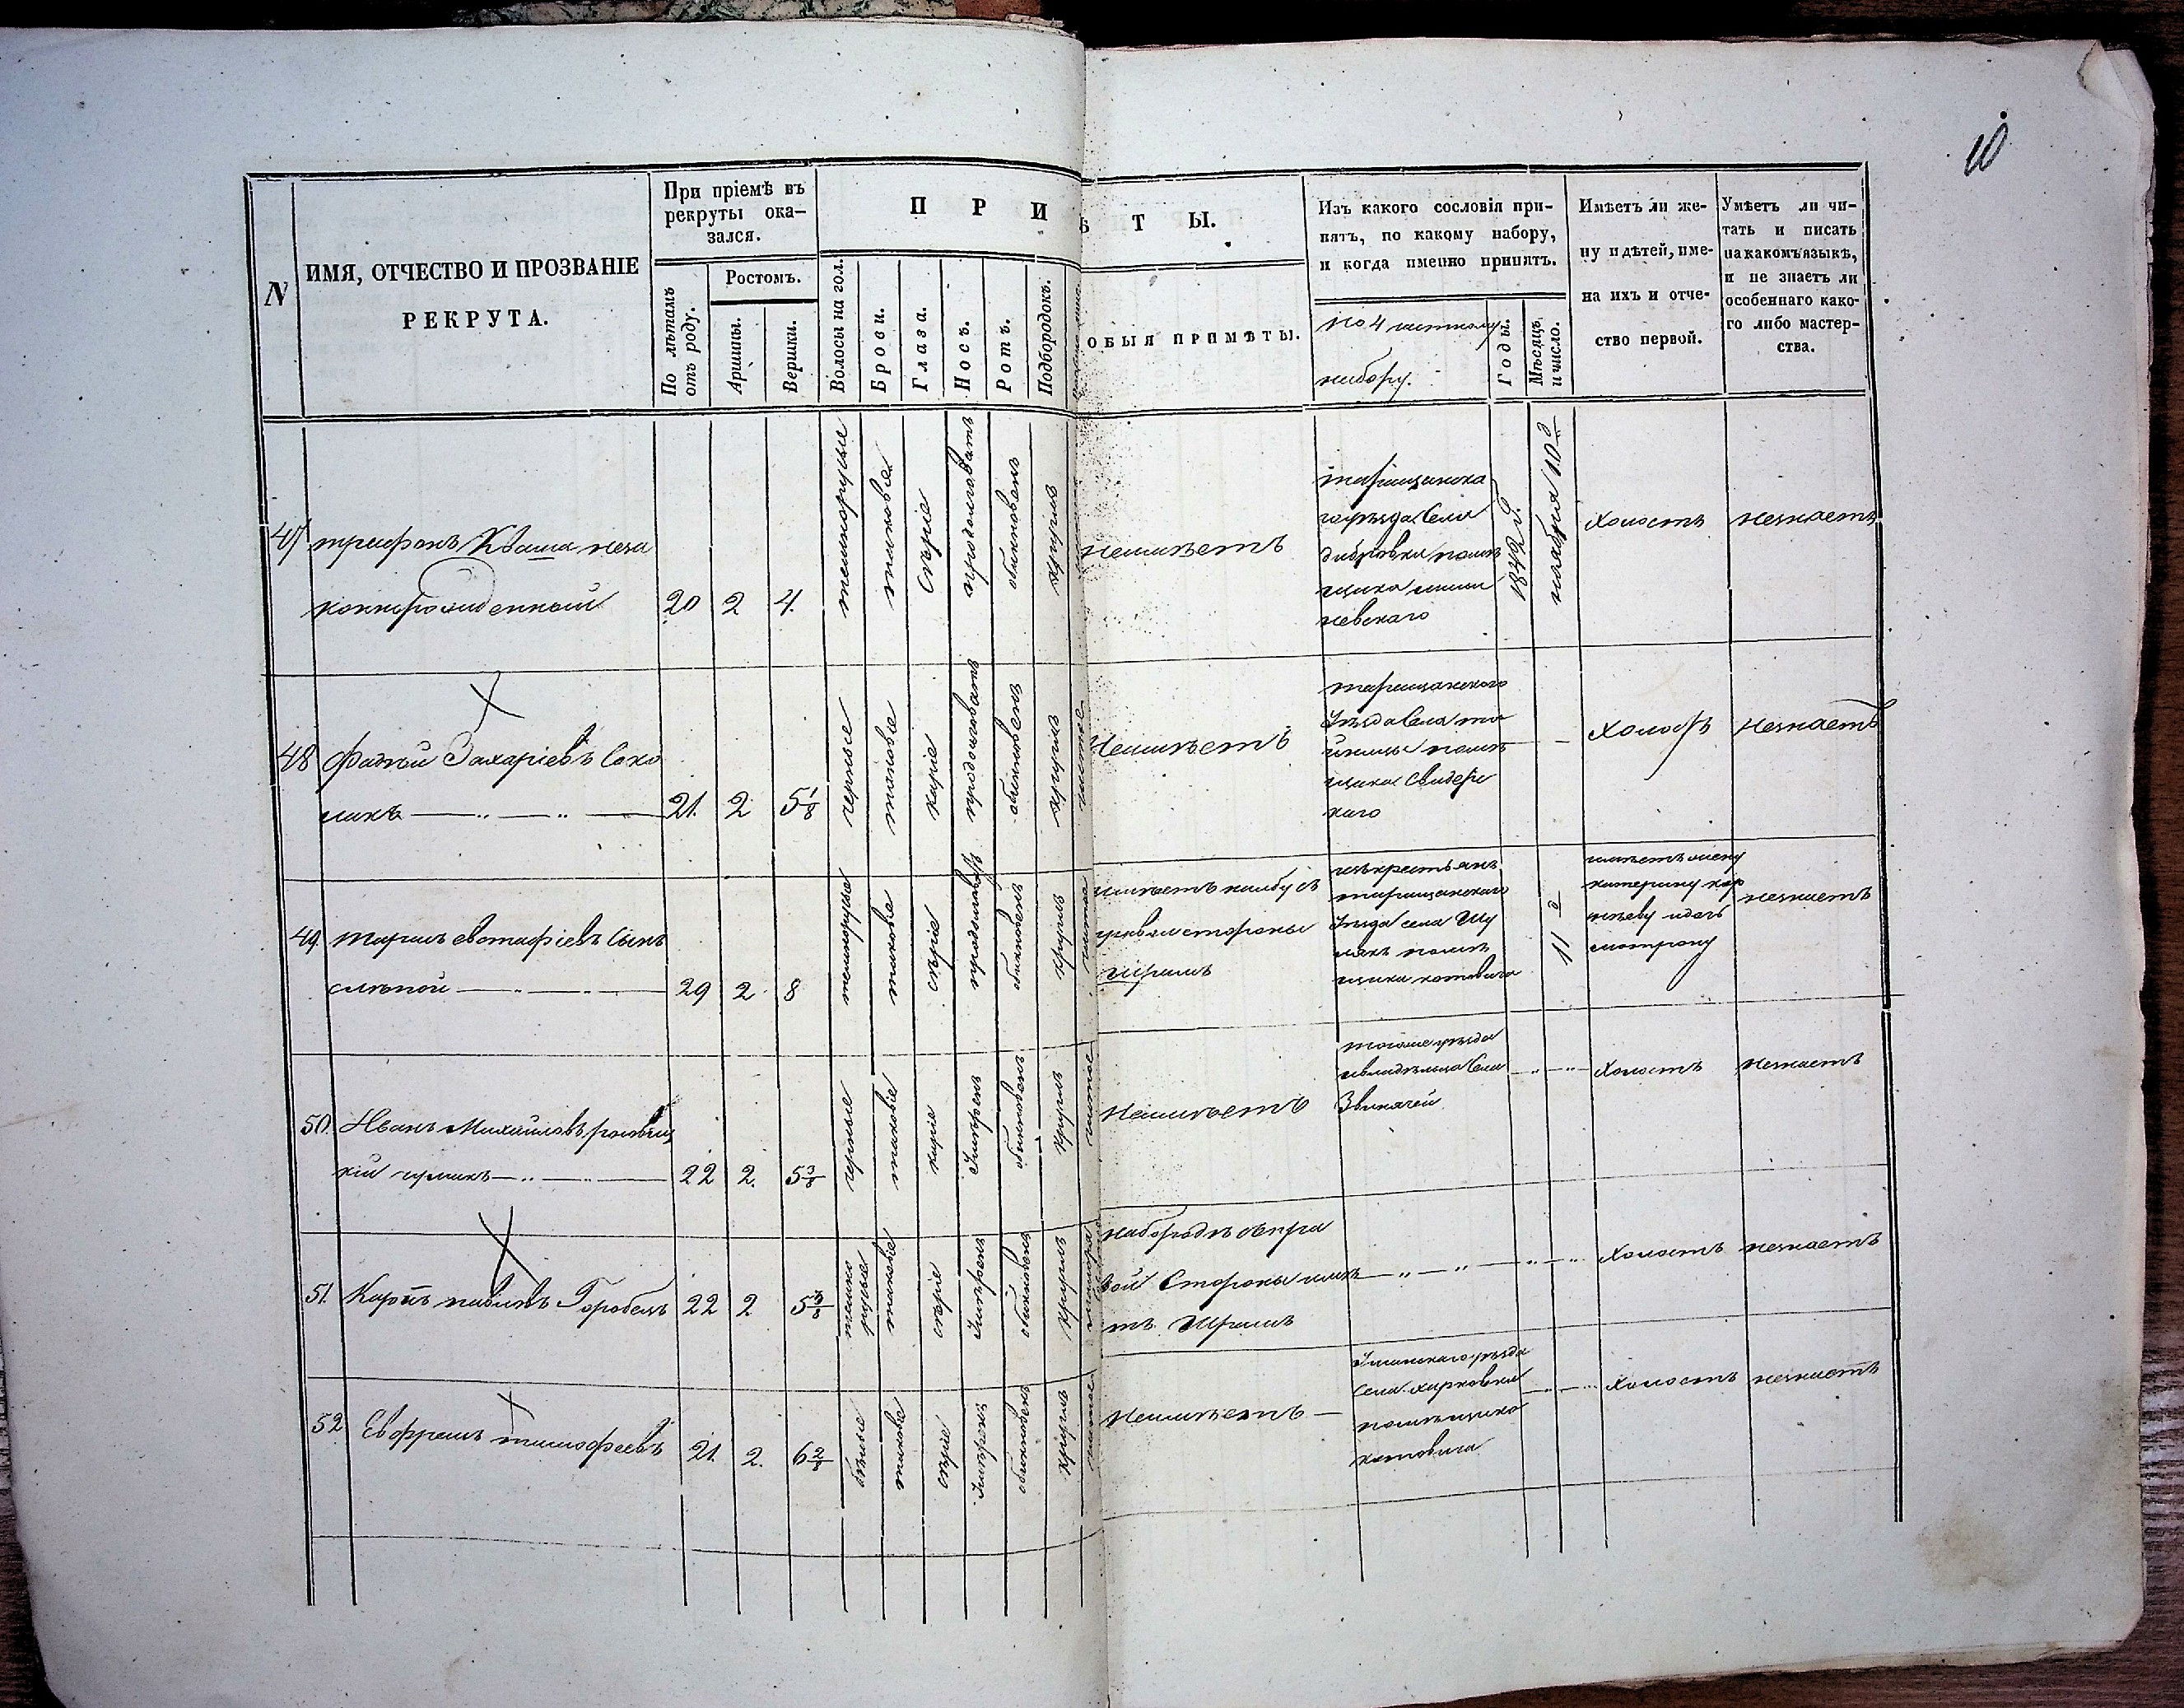 10
N
ИМЯ, ОТЧЕСТВО И ПРОЗВАНІЕ
РЕКРУТА.
При пріемѣ въ
рекруты ока-
зался.
По лѣтамъ
отъ роду.
Ростомъ.
Аршины.
Вершки.
П Р И
Ѣ Т Ы.
Волосы на гол.
Брови.
Глаза.
Носъ.
Ротъ.
Подбородокъ.
ОБЫЯ ПРИМѢТЫ.
Изъ какого сословія при-
нятъ, по какому набору,
и когда именно принятъ.
по 4 частному
набору.
Годы.
Мѣсяцъ
и число.
Имѣетъ ли же-
ну и дѣтей, име-
на ихъ и отче-
ство первой.
Умѣетъ ли чи-
тать и писать
на какомъ языкѣ,
и не знаетъ ли
особеннаго како-
го либо мастер-
ства.
47 трифонъ Кваша неза
коннорожденный 20 2 4.
темнорусые
таковые
Сѣрые
продолговатъ
обыкновенъ
круглъ
неимѣетъ
таращанска
го уѣзда Села
дибровки помѣ
щика
невскаго
1842 г.
ноября 10 д
Холостъ
незнаетъ
48 Фадѣй Захаріевъ Соко
ликъ 21. 2 5 1/8
черные
таковые
каріе
продолговатъ
обыкновенъ
круглъ
чистое
Неимѣетъ
таращанского
уѣзда Села
помѣ
щика Свидерс
каго
Холостъ
Незнаетъ
49. тарасъ евстафіевъ Сынъ
слѣпой 29 2 8
темнорусые
таковые
сѣрые
продолговатъ
обыкновенъ
круглъ
чистое
имѣетъ на лбу съ
правой стороны
шрамъ
изъ крестьянъ
таращанскаго
Уѣзда села Шу
лякъ помѣ
щика
11 д
имѣетъ жену
катерину кор
нѣеву и дочь
мотрону
незнаетъ
50. Иванъ Михайловъ
кій 22 2. 5 3/8
черные
таковые
каріе
Умѣренъ
обыкновенъ
круглъ
чистое
Неимѣетъ
тогоже уѣзда
и владѣльца Села
Звиначей
Холостъ
Незнаетъ
51. Карпъ павловъ Горобецъ 22 2 5 3/8
темно
русые
таковые
сѣрые
Умѣренъ
обыкновенъ
круглъ
набородѣ съ пра
вой Стороны имѣе
тъ Шрамъ
Холостъ
незнаетъ
52 Евфремъ тимофеевъ 21. 2. 6 2/8
бѣлые
таковые
сѣрые
Умѣренъ
обыкновенъ
круглъ
чистое
Неимѣетъ
Уманскаго уѣзда
Села харковки
помѣщика
Холостъ
незнаетъ